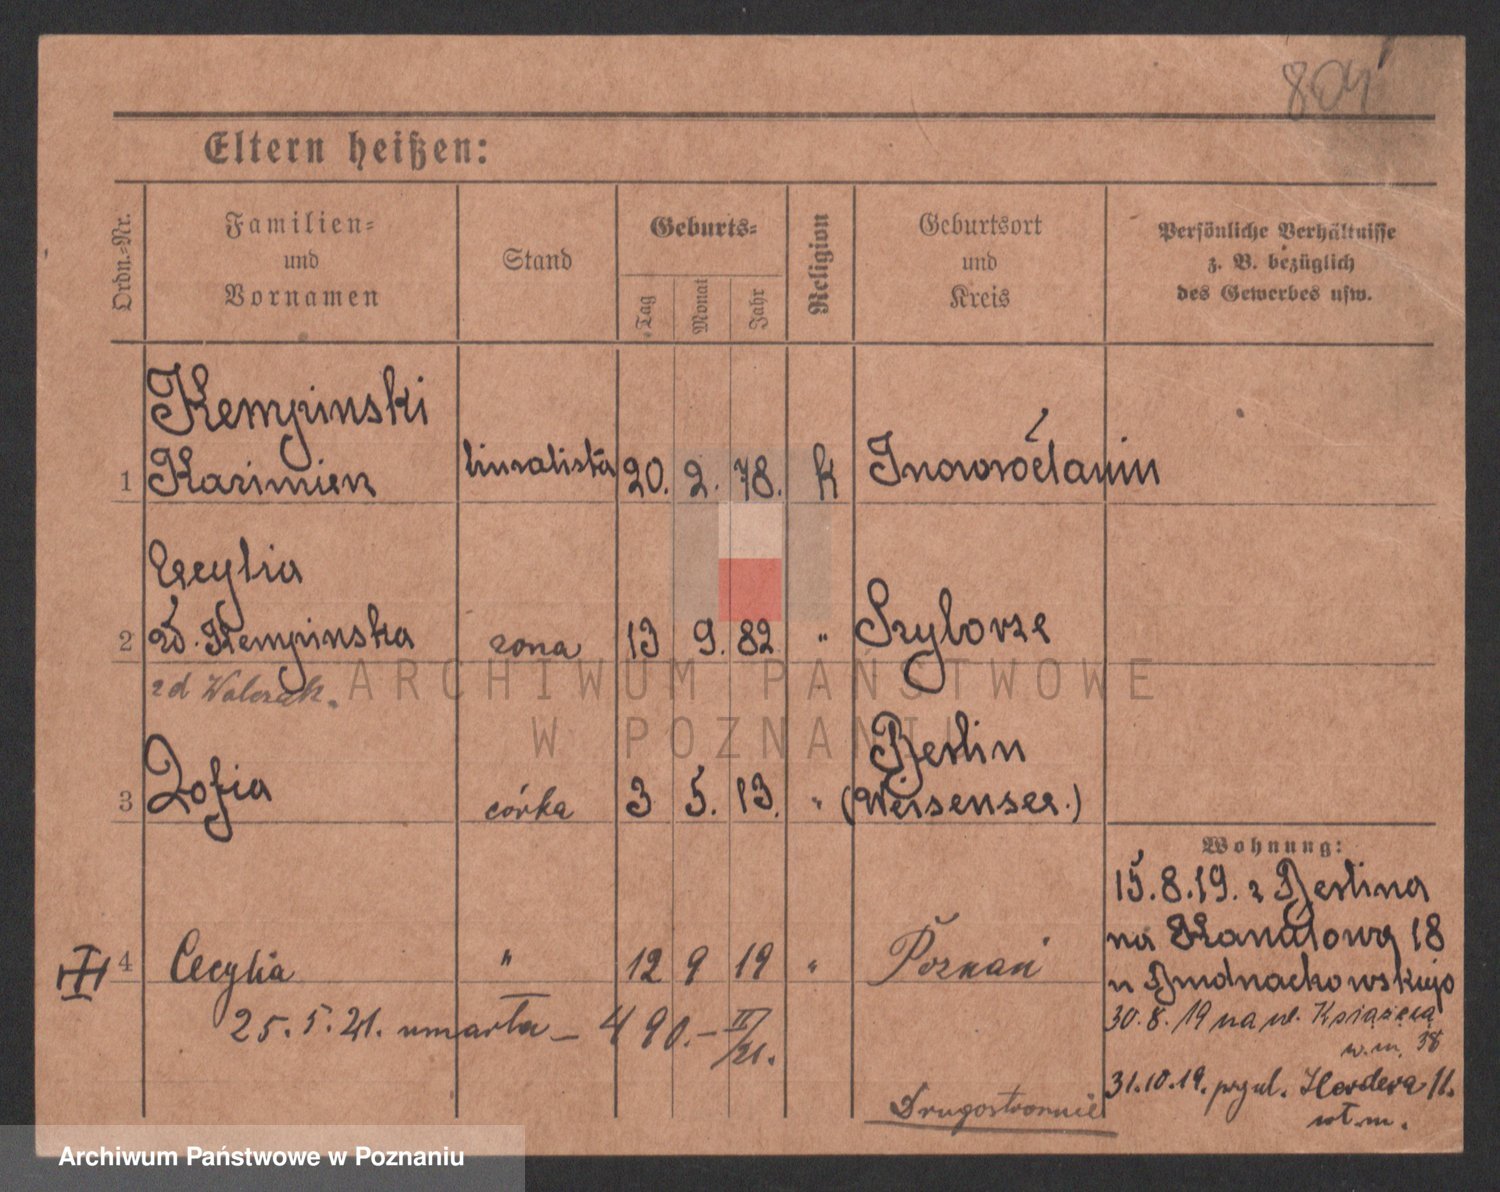 804
Eltern heißen:
Ordn.-Nr.
Familien-
und
Vornamen
Stand
Geburts-
Tag
Monat
Jahr
Religion
Geburtsort
und
Kreis
Persönliche Verhältnisse
z. B. bezüglich
des Gewerbes usw.
Kempinski
1 Kazimierz 20. 2. 78. k Inowrocławiu
Cecylia
2 Kempinska zona 13 9. 82 " Szyborze
zd Walczak.
Berlin
3 Zofia córka 3 5. 13. " (Weisensee.)
Wohnung:
15.8.19. z Berlina
na Kanałową 18
4 Cecylia " 12 9 19 " Poznań
u
25. 5. 21. umarła – 490. – II/21.
30. 8. 19 na ul. Książęcą
w.m. 38
31.10.19. przy ul. Herdera 11.
wł. m.
Drugostronnie
ARCHIWUM PAŃSTWOWE
W POZNANIU
Archiwum Państwowe w Poznaniu